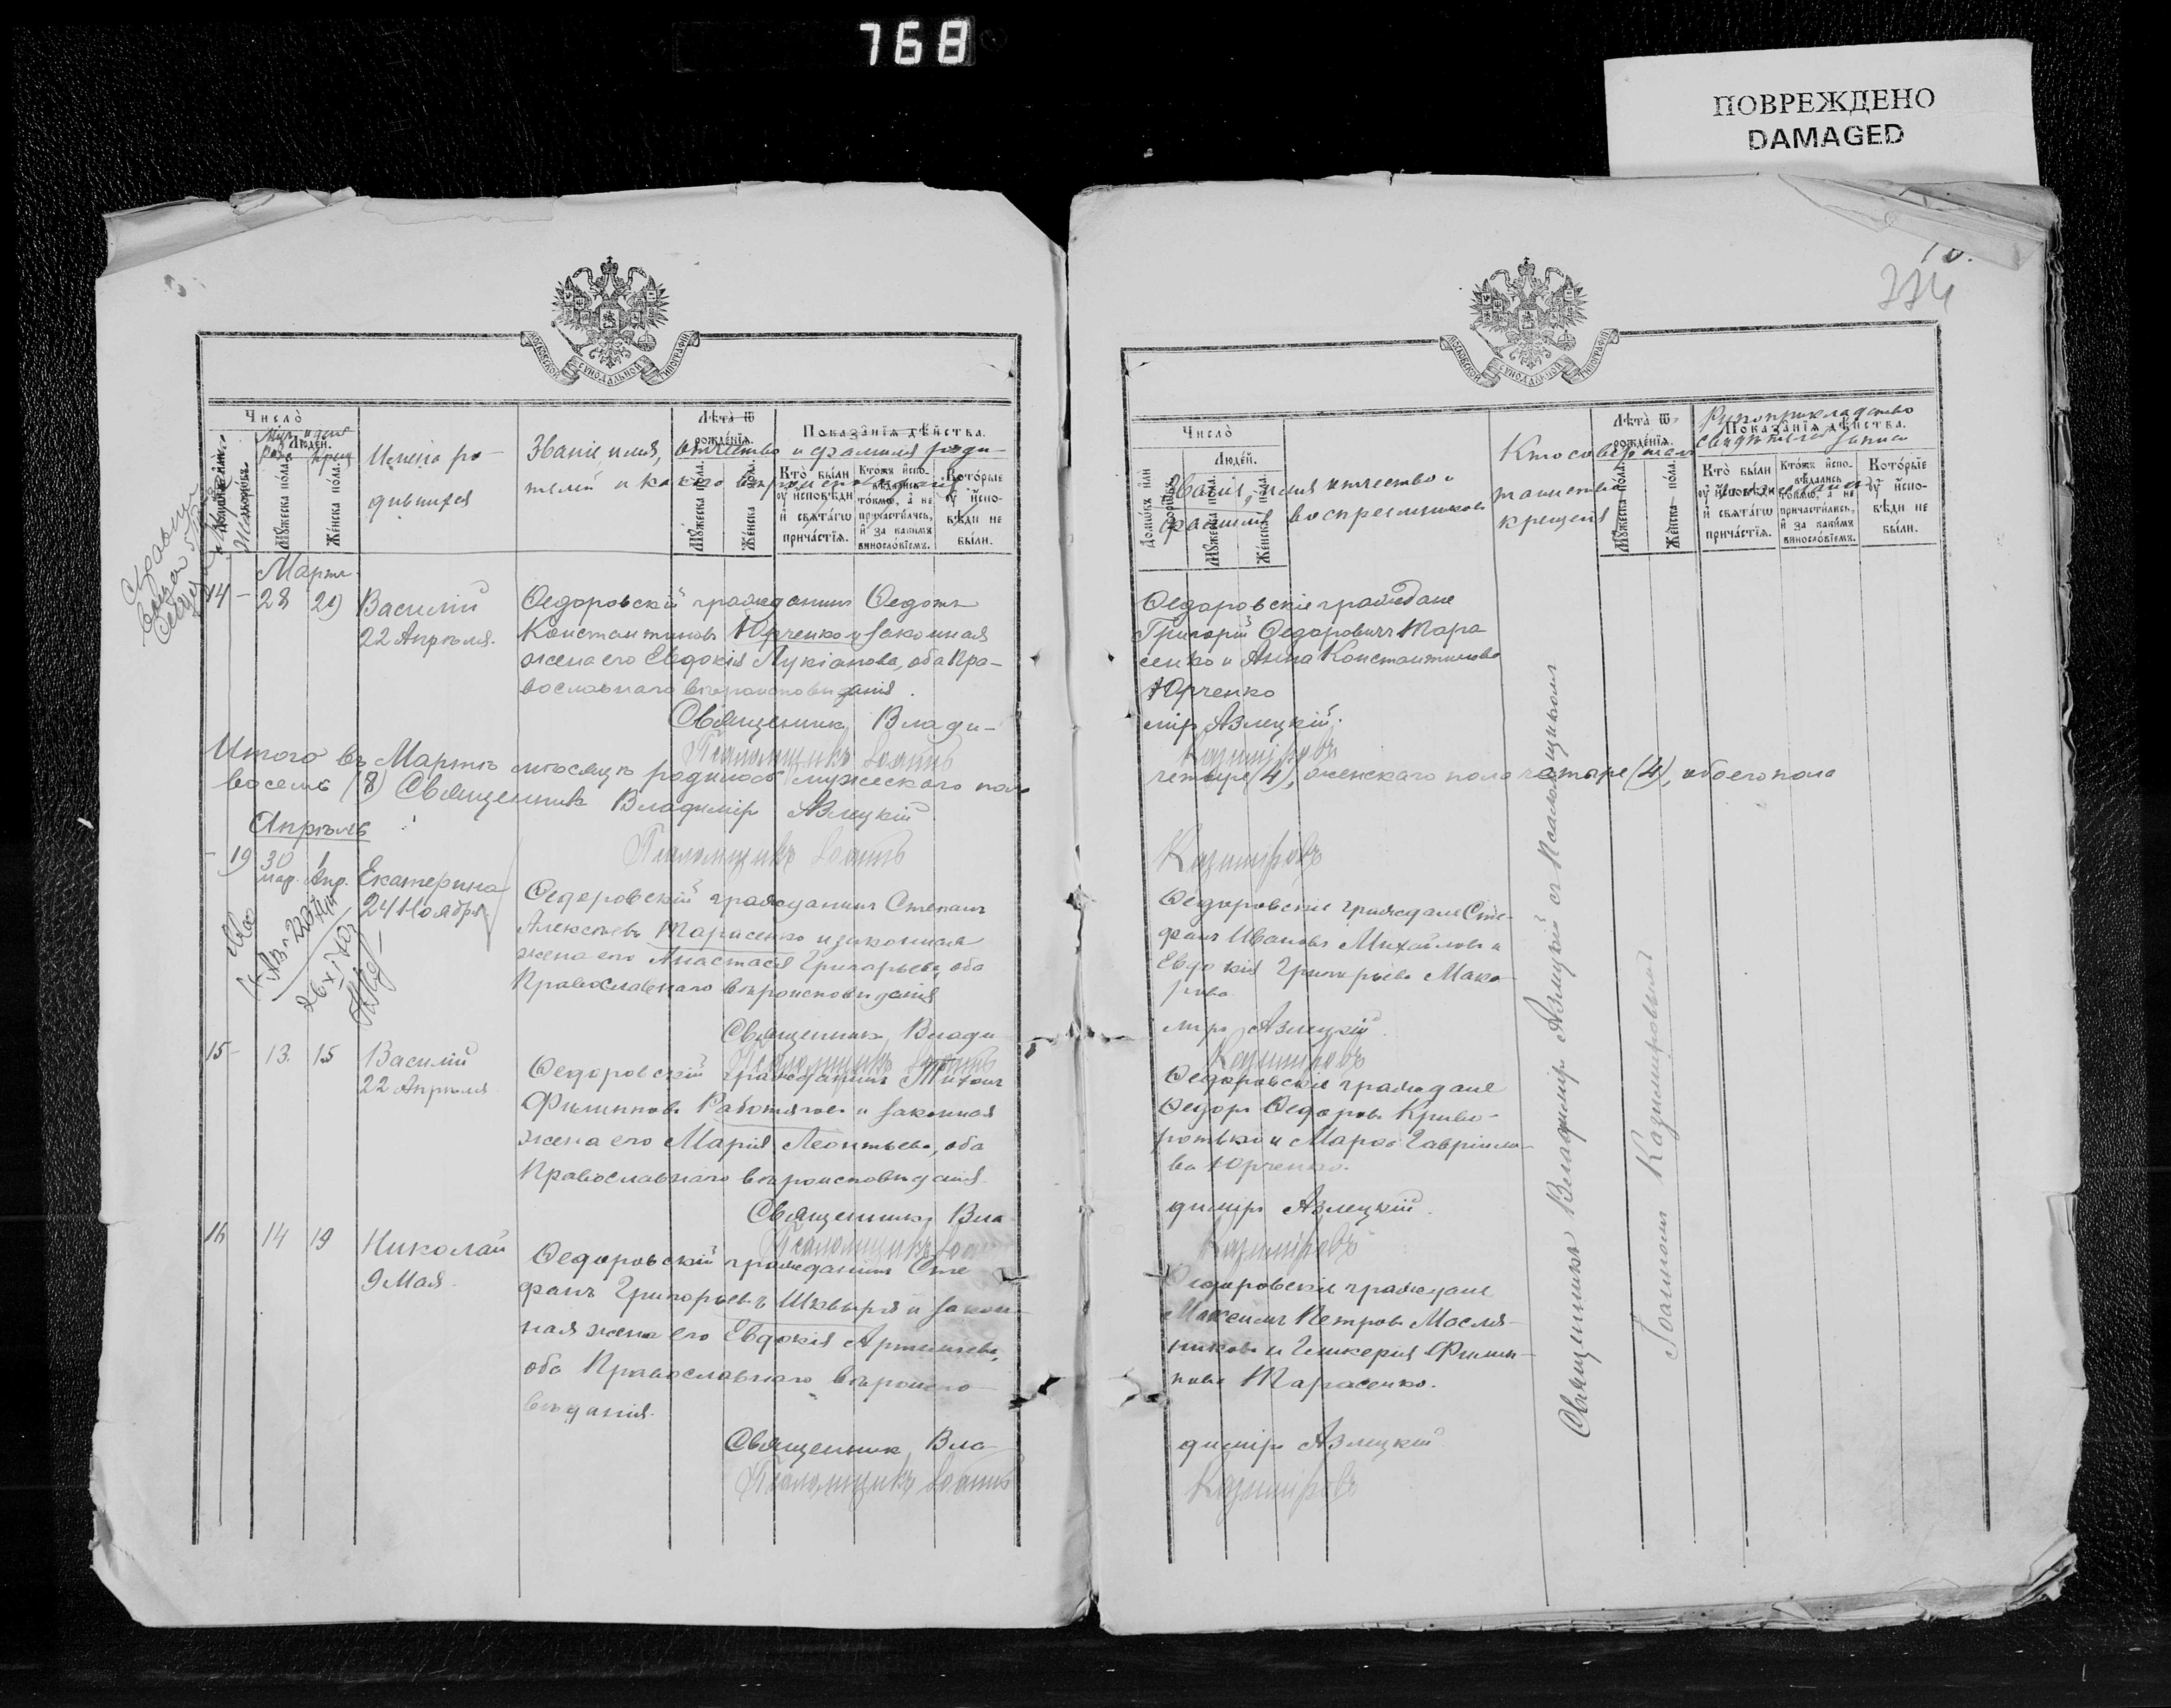 768
ПОВРЕЖДЕНО
DAMAGED
МОСКОВСКОЙ СѴНОДАЛЬНОЙ ТИПОГРАФІИ
Число
Людей.
Мужеска пола.
Женска пола.
Имена ро-
дившихся
Званіе, имя, отчество и фамилія роди-
телей и какого вѣроисповѣданія
Лѣта ѿ рожденія.
Мужеска пола.
Женска пола.
Показанія дѣйства.
Кто были оу исповѣди и свѧтагѡ причастїѧ.
Ктожъ исповѣдались токмѡ, а не причастились, и за какимъ винословїемъ.
Которые оу исповѣди не были.
Мартъ
14 - 28 29 Василій
22 Апрѣля.
Ѳедоровскій гражданинъ Ѳедотъ
Константиновъ Юрченко и законная
жена его Евдокія Лукіанова, оба Пра-
вославнаго вѣроисповѣданія.
Священникъ Влади-
Псаломщикъ Іоаннъ
Итого въ Мартѣ мѣсяцѣ родилось мужескаго пола
восемь (8) Священникъ Владиміръ Азлецкій
Псаломщикъ Іоаннъ
Апрѣль
19 30 мар. 1 Апр. Екатерина
24 Ноября
Ѳедоровскій гражданинъ Степанъ
Алексѣевъ Тарасенко и законная
жена его Анастасія Григорьева, оба
Православнаго вѣроисповѣданія
Священникъ Влади
Псаломщикъ Іоаннъ
15 - 13. 15 Василій
22 Апрѣля
Ѳедоровскій гражданинъ Тихонъ
Филипповъ Работяговъ и законная
жена его Марія Леонтьева, оба
Православнаго вѣроисповѣданія.
Священникъ Вла
Псаломщикъ Іоаннъ
16 14 19 Николай
9 Мая.
Ѳедоровскій гражданинъ Сте
фанъ Григорьевъ Шквыря и закон-
ная жена его Евдокія Артемьева,
оба Православнаго вѣроиспо-
вѣданія.
Священникъ Вла-
Псаломщикъ Іоаннъ
334
МОСКОВСКОЙ СѴНОДАЛЬНОЙ ТИПОГРАФІИ
Число
Домовъ или дворовъ
Людей.
Мужеска пола.
Женска пола.
Званіе, имя, отчество и
фамилія воспреемниковъ
Кто совершалъ
таинство
крещенія
Лѣта ѿ рожденія.
Мужеска пола.
Женска пола.
Рукоприкладство
свидѣтелей записи
Показанія дѣйства.
Кто были оу исповѣди и свѧтагѡ причастїѧ.
Ктожъ исповѣдались токмѡ, а не причастились, и за какимъ винословїемъ.
Которые оу исповѣди не были.
Ѳедоровскіе граждане
Григорій Ѳедоровичъ Тара
сенко и Анна Константинова
Юрченко
міръ Азлецкій.
Казиміровъ
четыре (4), женскаго пола четыре (4), обоего пола
Казиміровъ
Ѳедоровскіе граждане Сте-
фанъ Ивановъ Михайловъ и
Евдокія Григорьева Мака-
рова
міръ Азлецкій
Казиміровъ
Ѳедоровскіе граждане
Ѳедоръ Ѳедоровъ Криво-
ротько и Марѳа Гавріило-
ва Юрченко.
диміръ Азлецкій.
Казиміровъ
Ѳедоровскіе граждане
Максимъ Петровъ Масля-
никовъ и Гликерія Филип-
пова Тарасенко.
диміръ Азлецкій
Казиміровъ
Священникъ Владиміръ Азлецкій съ Псаломщикомъ
Іоанномъ Казиміровымъ